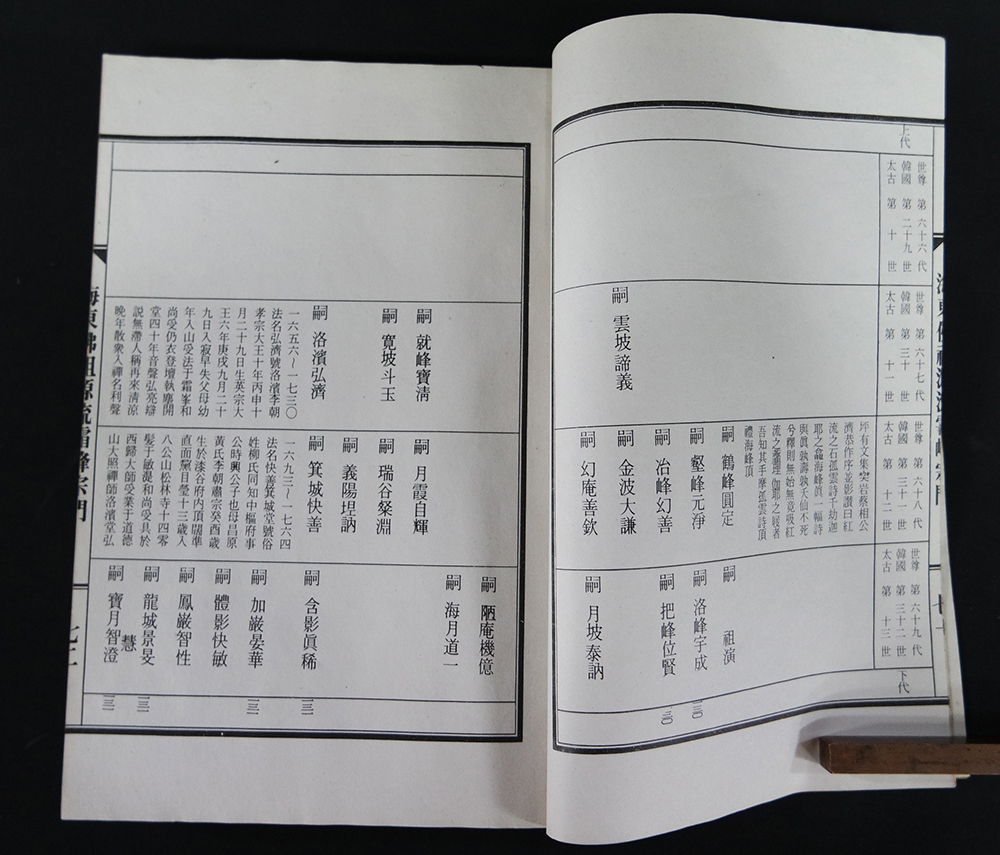 上代
世尊 第 六十六 代
韓國 第 二十九 世
太古 第 十 世
世尊 第 六十七 代
韓國 第 三十 世
太古 第 十一 世
嗣 雲坡諦義
世尊 第 六十八 代
韓國 第 三十一 世
太古 第 十二 世
坪有文集奕岩蔡相公
濟恭作序並影讃曰紅
流之石孤雲詩千劫迦
耶之龕海峰眞一幅詩
與眞孰壽孰夭仙不死
兮釋則無始無竟吸紅
吾知其手摩孤雲詩頂
禮海峰頂
嗣 鶴峰圓定
嗣 壑峰元淨
嗣 治峰幻善
嗣 金波大謙
嗣 幻庵善欽
世尊 第 六十九 代
韓國 第 三十二 世
太古 第 十三 世
下代
嗣 祖演
嗣 洛峰宇成
一三〇
嗣 把峰位賢
一三〇
嗣 月坡泰訥
嗣 就峰寶淸
嗣 寬坡斗玉
嗣 洛濱弘濟
一六五六~一七三〇
法名弘濟號洛濱李朝
孝宗大王十年丙申十
月二十九日生英宗大
王六年庚戌九月二十
九日入寂早失父母幼
年入山受法于霜峯和
尚受仍衣登壇執麈開
堂四十年音聲弘亮辯
説無滯人稱再來淸凉
晚年散衆入禪名利聲
嗣 月霞自輝
嗣 瑞谷粲淵
嗣 義陽坦訥
嗣 箕城快善
一六九三~一七六四
法名快善箕城堂號俗
姓柳氏同知中樞府事
公時興公子也母昌原
黃氏李朝肅宗癸酉歲
生於漆谷府内頂闊準
直面黧目瑩十三歲入
八公山松林寺十四零
髮于敏湜和尚受具於
西歸大師受業于道德
山大照禪師洛濱堂弘
嗣 陋庵機億
嗣 海月道一
嗣 含影眞稀
一三一
嗣 加巖晏華
一三一
嗣 體影快敏
嗣 鳳巖智性
嗣 龍城景旻
慧
一三一
嗣 寶月智澄
一三一
海東佛祖源流霜峰宗門